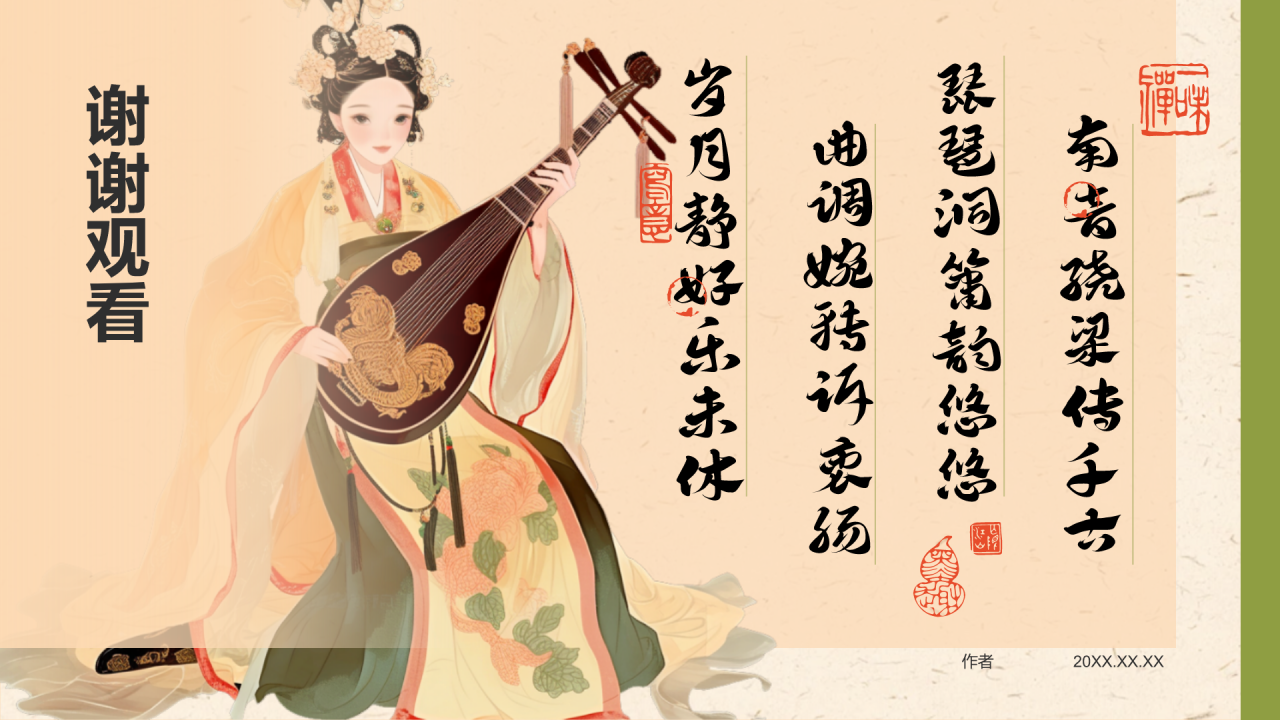 南音绕梁传千古
琵琶洞箫韵悠悠
曲调婉转诉衷肠
岁月静好乐未休
谢谢观看
作者
20XX.XX.XX